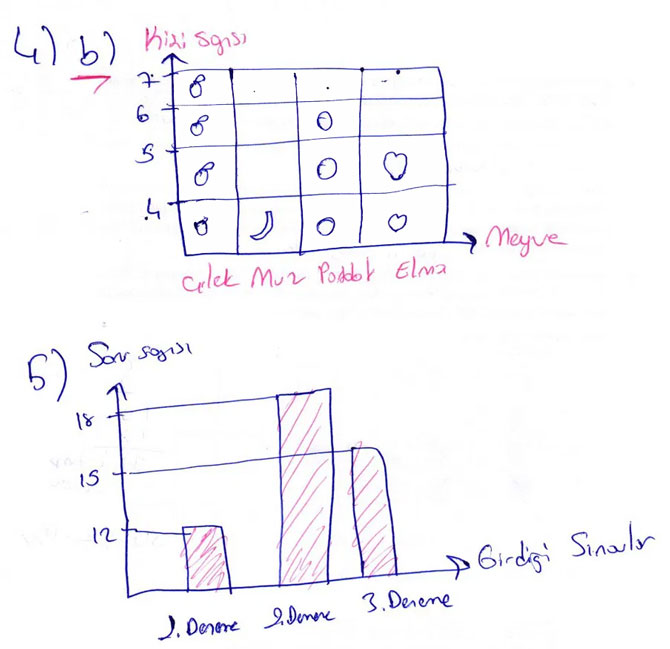 4) b) Kişi sayısı
7
6
5
4
Meyve
Çilek Muz Portakal Elma
5) Soru sayısı
18
15
12
Girdiği Sınavlar
1. Deneme 2. Deneme 3. Deneme